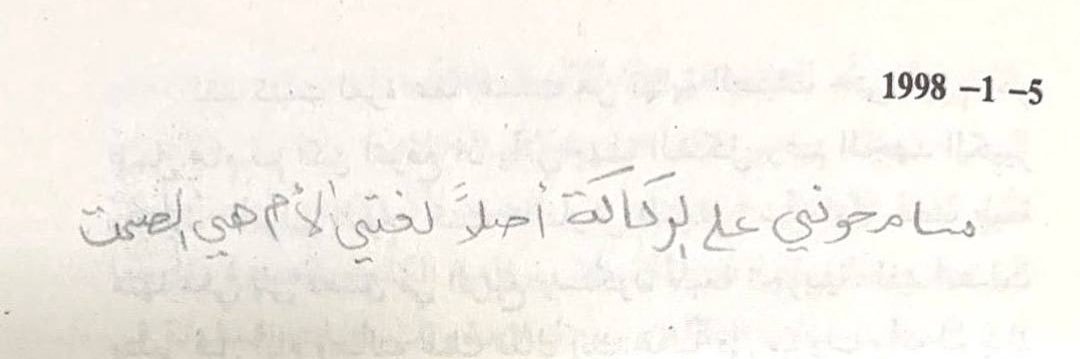 1998 -1 -5
سامحوني على الركاكة أصلاً لغتي الأم هي الصمت